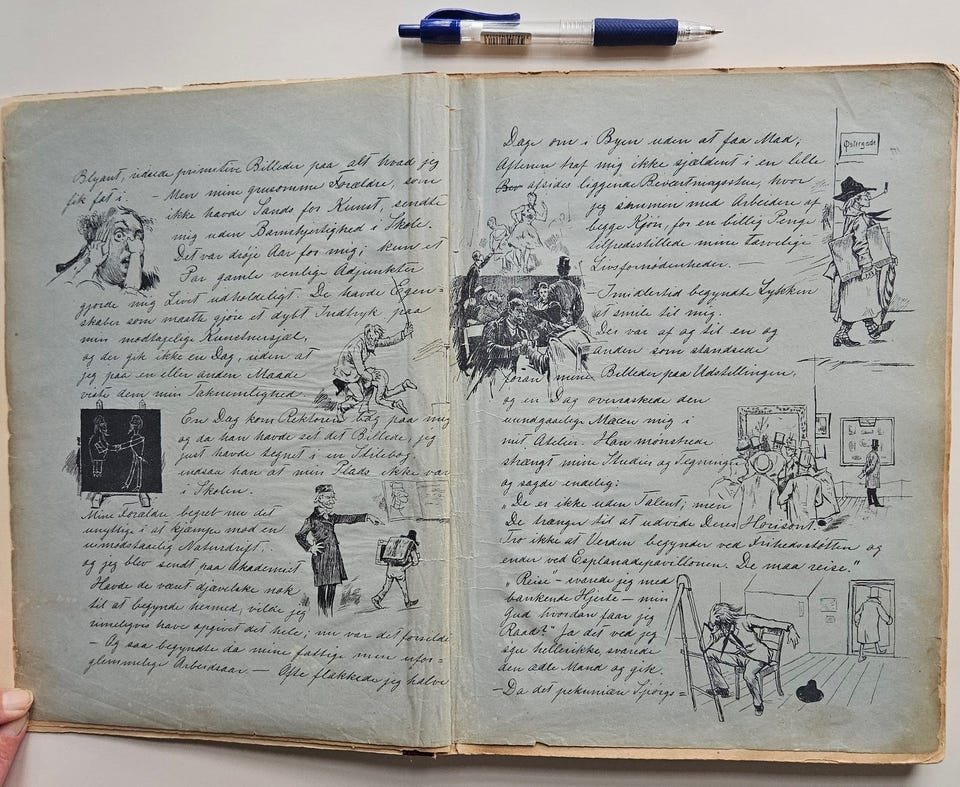 Blyant, udsede primitive Billeder paa alt hvad jeg
fik fat i. — Men mine grusomme Forældre, som
ikke havde Sands for Kunst, sendte
mig uden Barmhjertighed i Skole.
Det var drøje Aar for mig; kun et
Par gamle venlige Adjunkter
gjorde mig Livet udholdeligt. De havde Egen-
skaber som maatte gjøre et dybt Indtryk paa
min modtagelige Kunstnersjæl,
og der gik ikke en Dag, uden at
jeg paa en eller anden Maade
viste dem min Taknemlighed.
En Dag kom Rektoren bag paa mig
og da han havde set det Billede, jeg
just havde tegnet i en Stilebog,
indsaa han at min Plads ikke var
i Skolen.
Mine Forældre begreb nu det
unyttige i at kjæmpe mod en
uimodstaaelig Naturdrift,
og jeg blev sendt paa Akademiet
Havde de været djævelske nok
til at begynde hermed, vilde jeg
rimeligvis have opgivet det hele; nu var det forsilde
— Og saa begyndte da mine fattige men ufor-
glemmelige Arbejdsaar — Ofte flakkede jeg halve
Dage om i Byen uden at faa Mad;
Aftenen traf mig ikke sjældent i en lille
afsides liggende Beværtningsstue, hvor
jeg sammen med Arbeidere af
begge Kjøn, for en billig Penge
tilfredsstillede mine tarvelige
Livsfornødenheder. —
Østergade
— Imidlertid begyndte Lykken
at smile til mig.
Der var af og til en og
anden som standsede
foran mine Billeder paa Udstillingen,
og en Dag overraskede den
uundgaaelige Mæcen mig i
mit Atelier. Han mønstrede
strængt mine Studier og Tegninger
og sagde endelig:
„De er ikke uden Talent; men
De trænger til at udvide Deres Horisont.
Tro ikke at Verden begynder ved Frihedsstøtten og
ender ved Esplanadepavillonen. De maa reise."
„Reise" — svarede jeg med
bankende Hjerte — min
Gud hvordan faar jeg
Raad?" Ja det ved jeg
sgu hellerikke, svarede
den ædle Mand og gik.
— Da det pekuniære Spörgs=